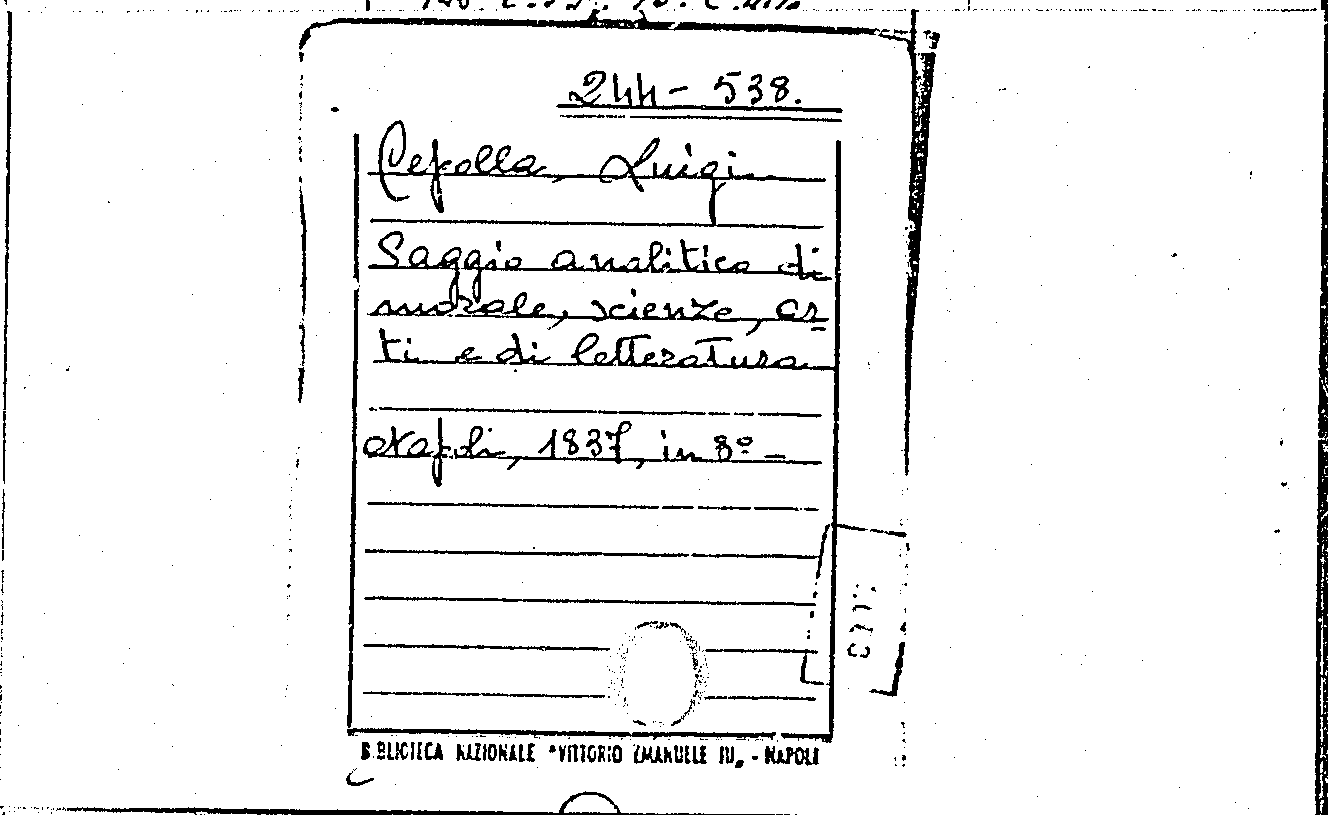 244 - 538.
Cepolla, Luigi
Saggio analitico di
morale, scienze, ar=
ti e di letteratura
Napoli, 1837, in 8º -
BIBLIOTECA NAZIONALE "VITTORIO EMANUELE III„ - NAPOLI